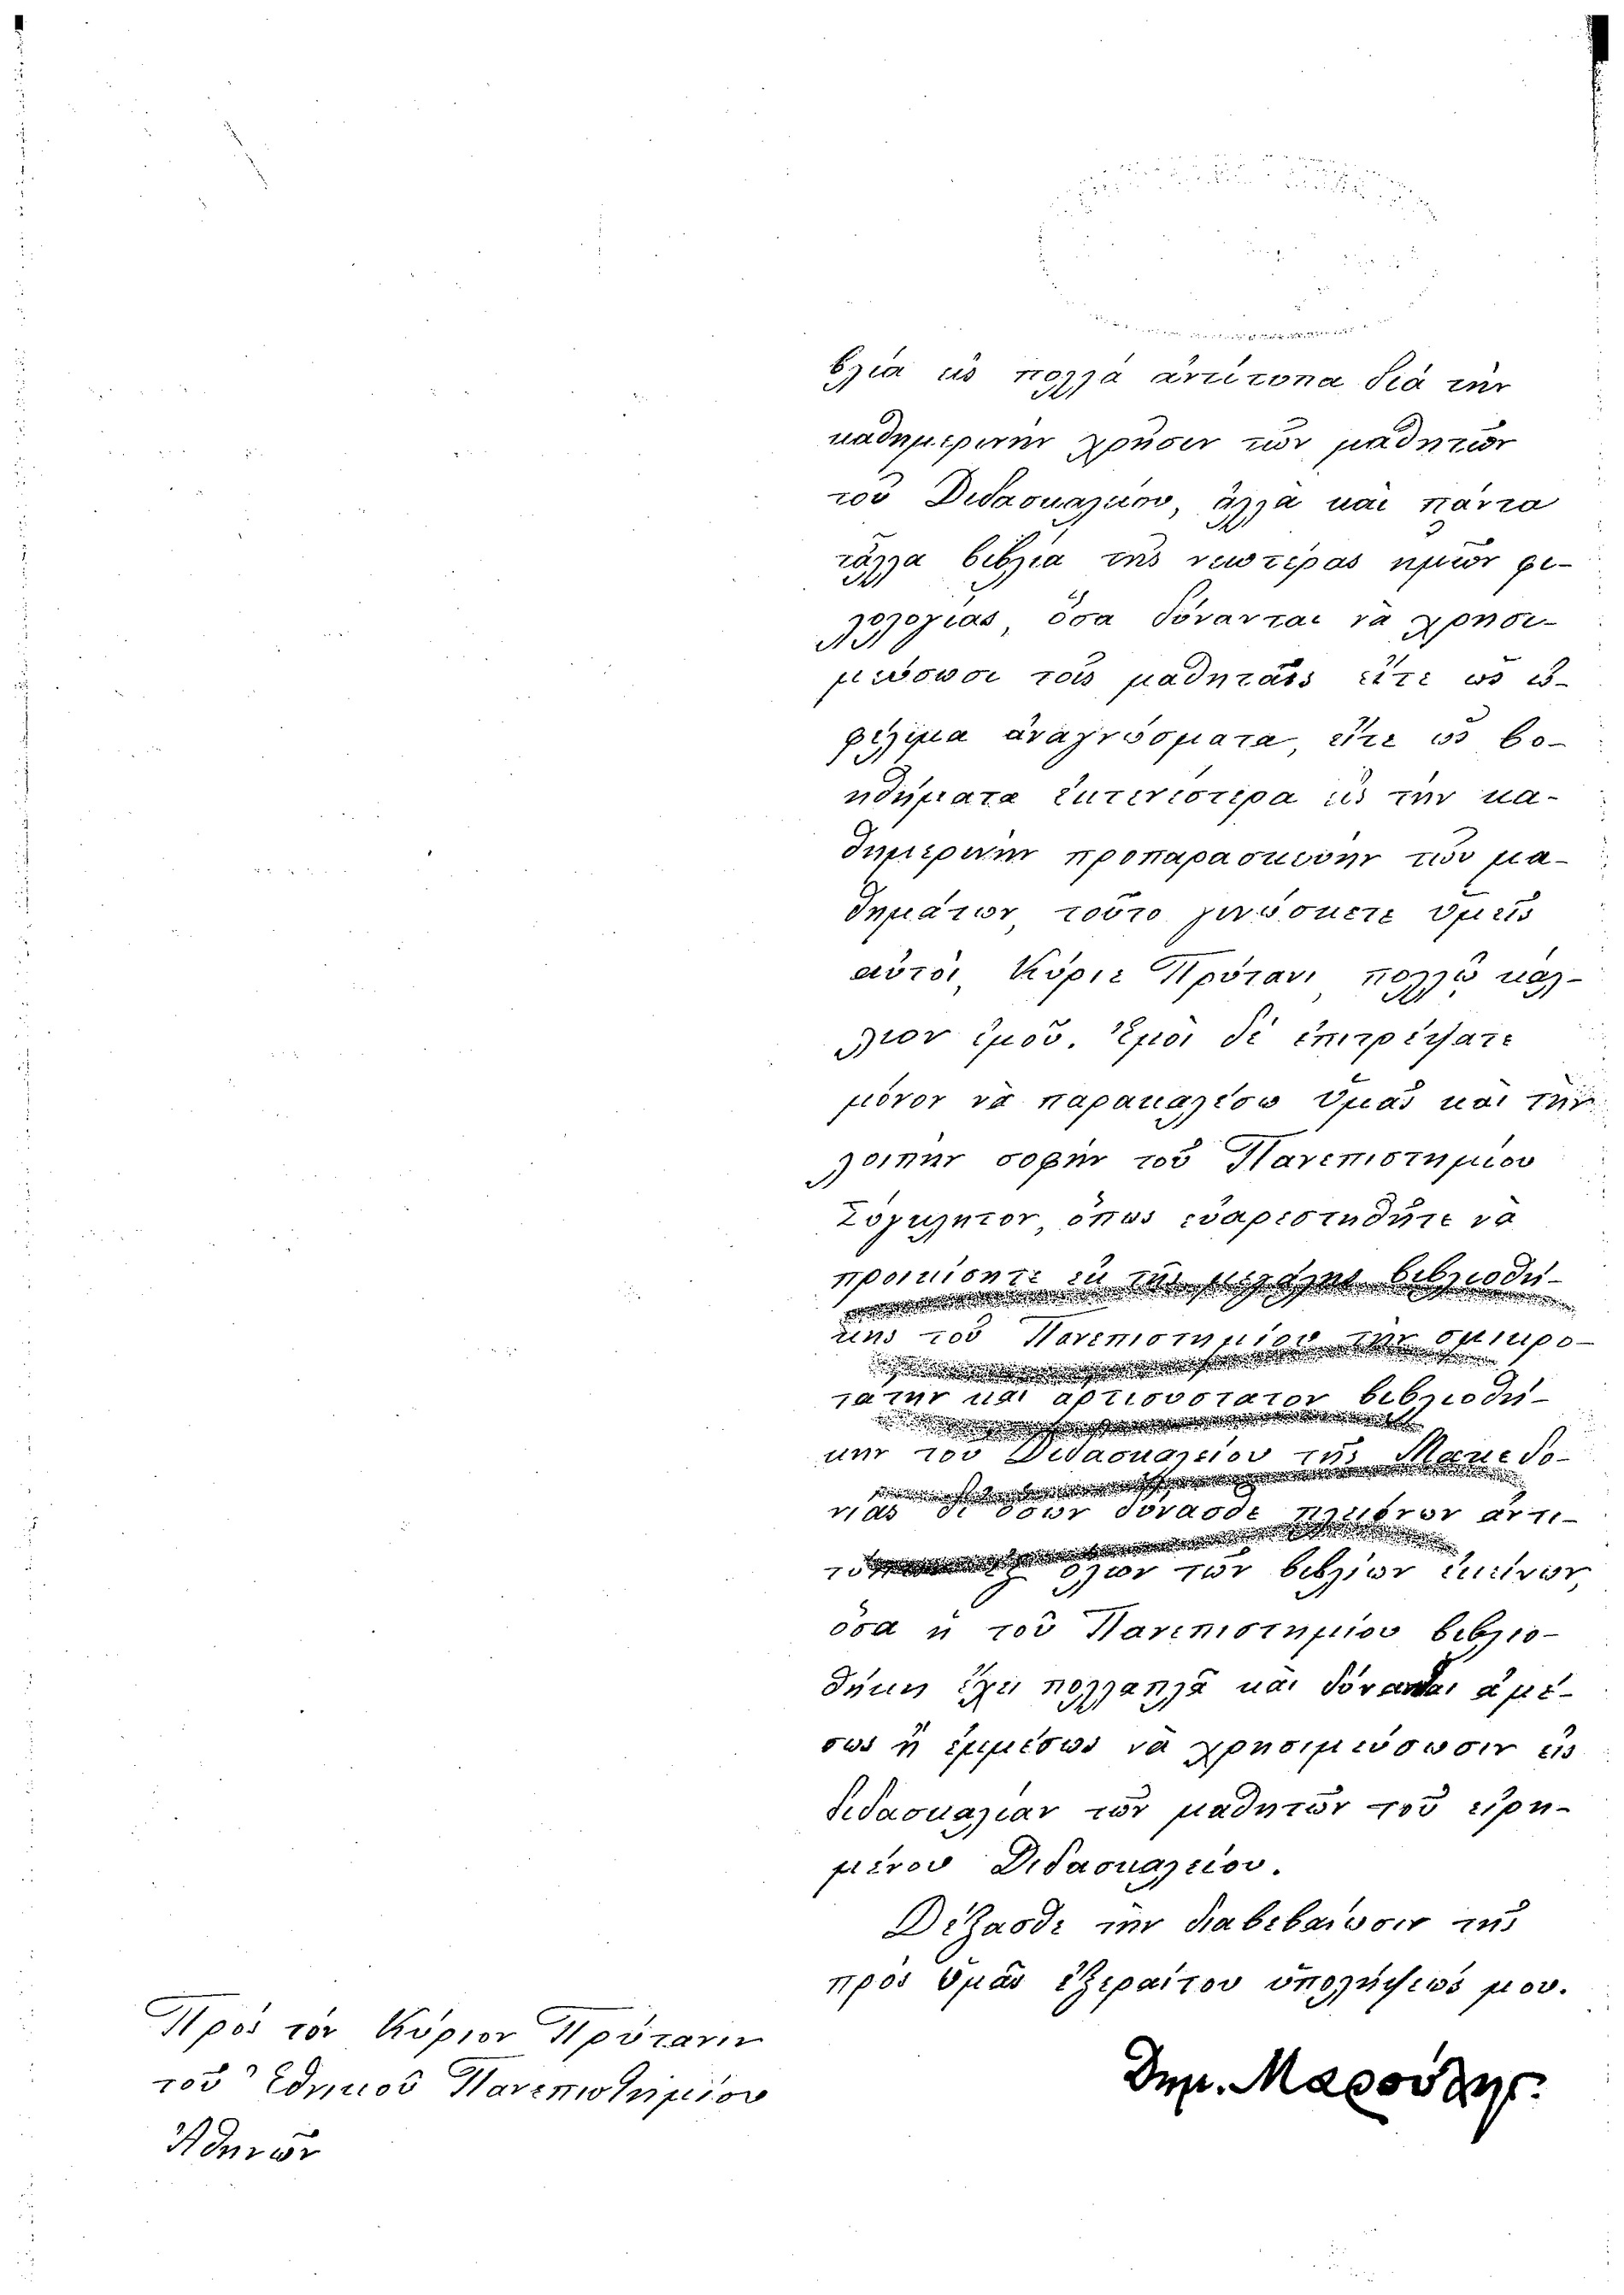 βλία εἰς πολλὰ ἀντίτυπα διὰ τὴν
καθημερινὴν χρῆσιν τῶν μαθητῶν
τοῦ Διδασκαλείου, ἀλλὰ καὶ πάντα
τἆλλα βιβλία τῆς νεωτέρας ἡμῶν φι-
λολογίας, ὅσα δύνανται νὰ χρησι-
μεύσωσι τοῖς μαθηταῖς εἴτε ὡς ὠ-
φέλιμα ἀναγνώσματα, εἴτε ὡς βο-
ηθήματα ἐκτενέστερα εἰς τὴν κα-
θημερινὴν προπαρασκευὴν τῶν μα-
θημάτων, τοῦτο γινώσκετε Ὑμεῖς
αὐτοί, Κύριε Πρύτανι, πολλῷ κάλ-
λιον ἐμοῦ. Ἐμοὶ δὲ ἐπιτρέψατε
μόνον νὰ παρακαλέσω Ὑμᾶς καὶ τὴν
λοιπὴν σοφὴν τοῦ Πανεπιστημίου
Σύγκλητον, ὅπως εὐαρεστηθῆτε νὰ
προικίσητε ἐκ τῆς μεγάλης βιβλιοθή-
κης τοῦ Πανεπιστημίου τὴν σμικρο-
τάτην καὶ ἀρτισύστατον βιβλιοθή-
κην τοῦ Διδασκαλείου τῆς Μακεδο-
νίας δι' ὅσων δύνασθε πλειόνων ἀντι-
τύπων ἐξ ὅλων τῶν βιβλίων ἐκείνων,
ὅσα ἡ τοῦ Πανεπιστημίου βιβλιο-
θήκη ἔχει πολλαπλᾶ καὶ δύνανται ἀμέ-
σως ἢ ἐμμέσως νὰ χρησιμεύσωσιν εἰς
διδασκαλίαν τῶν μαθητῶν τοῦ εἰρη-
μένου Διδασκαλείου.
Δέξασθε τὴν διαβεβαίωσιν τῆς
πρὸς Ὑμᾶς ἐξεραίτου ὑπολήψεώς μου.
Δημ. Μαρούλης.
Πρὸς τὸν Κύριον Πρύτανιν
τοῦ Ἐθνικοῦ Πανεπιστημίου
Ἀθηνῶν